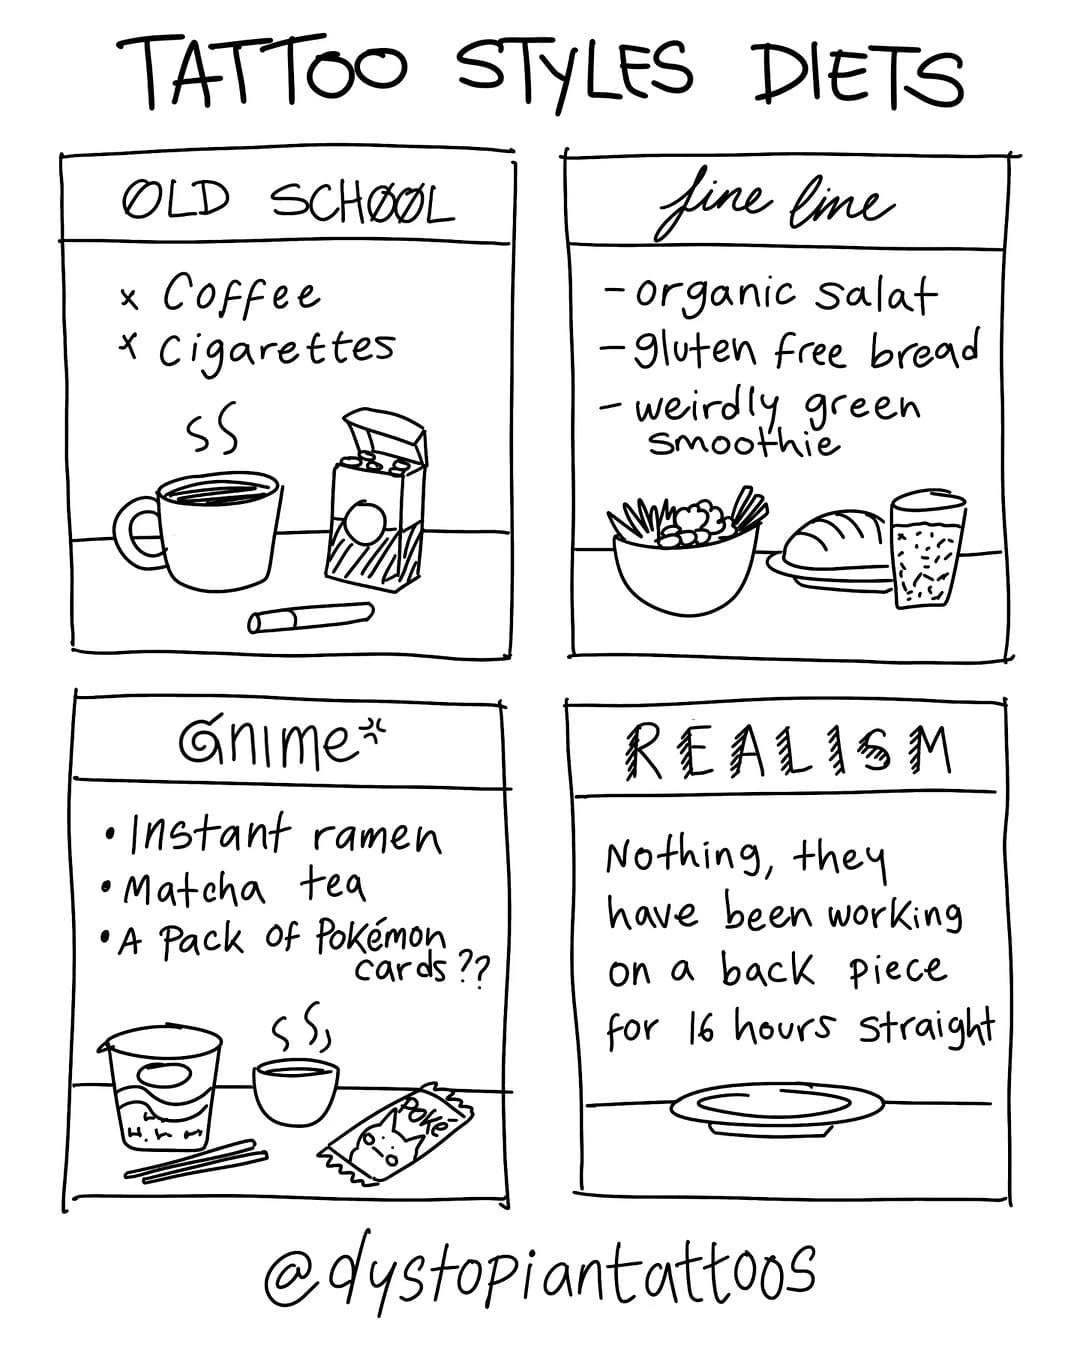 TATTOO STYLES DIETS
OLD SCHØØL
x Coffee
x Cigarettes
fine line
- organic salat
- gluten free bread
- weirdly green
smoothie
anime
• Instant ramen
• Matcha tea
• A Pack of Pokémon
cards??
Poké
REALISM
Nothing, they
have been working
on a back piece
for 16 hours straight
@dystopiantattoos